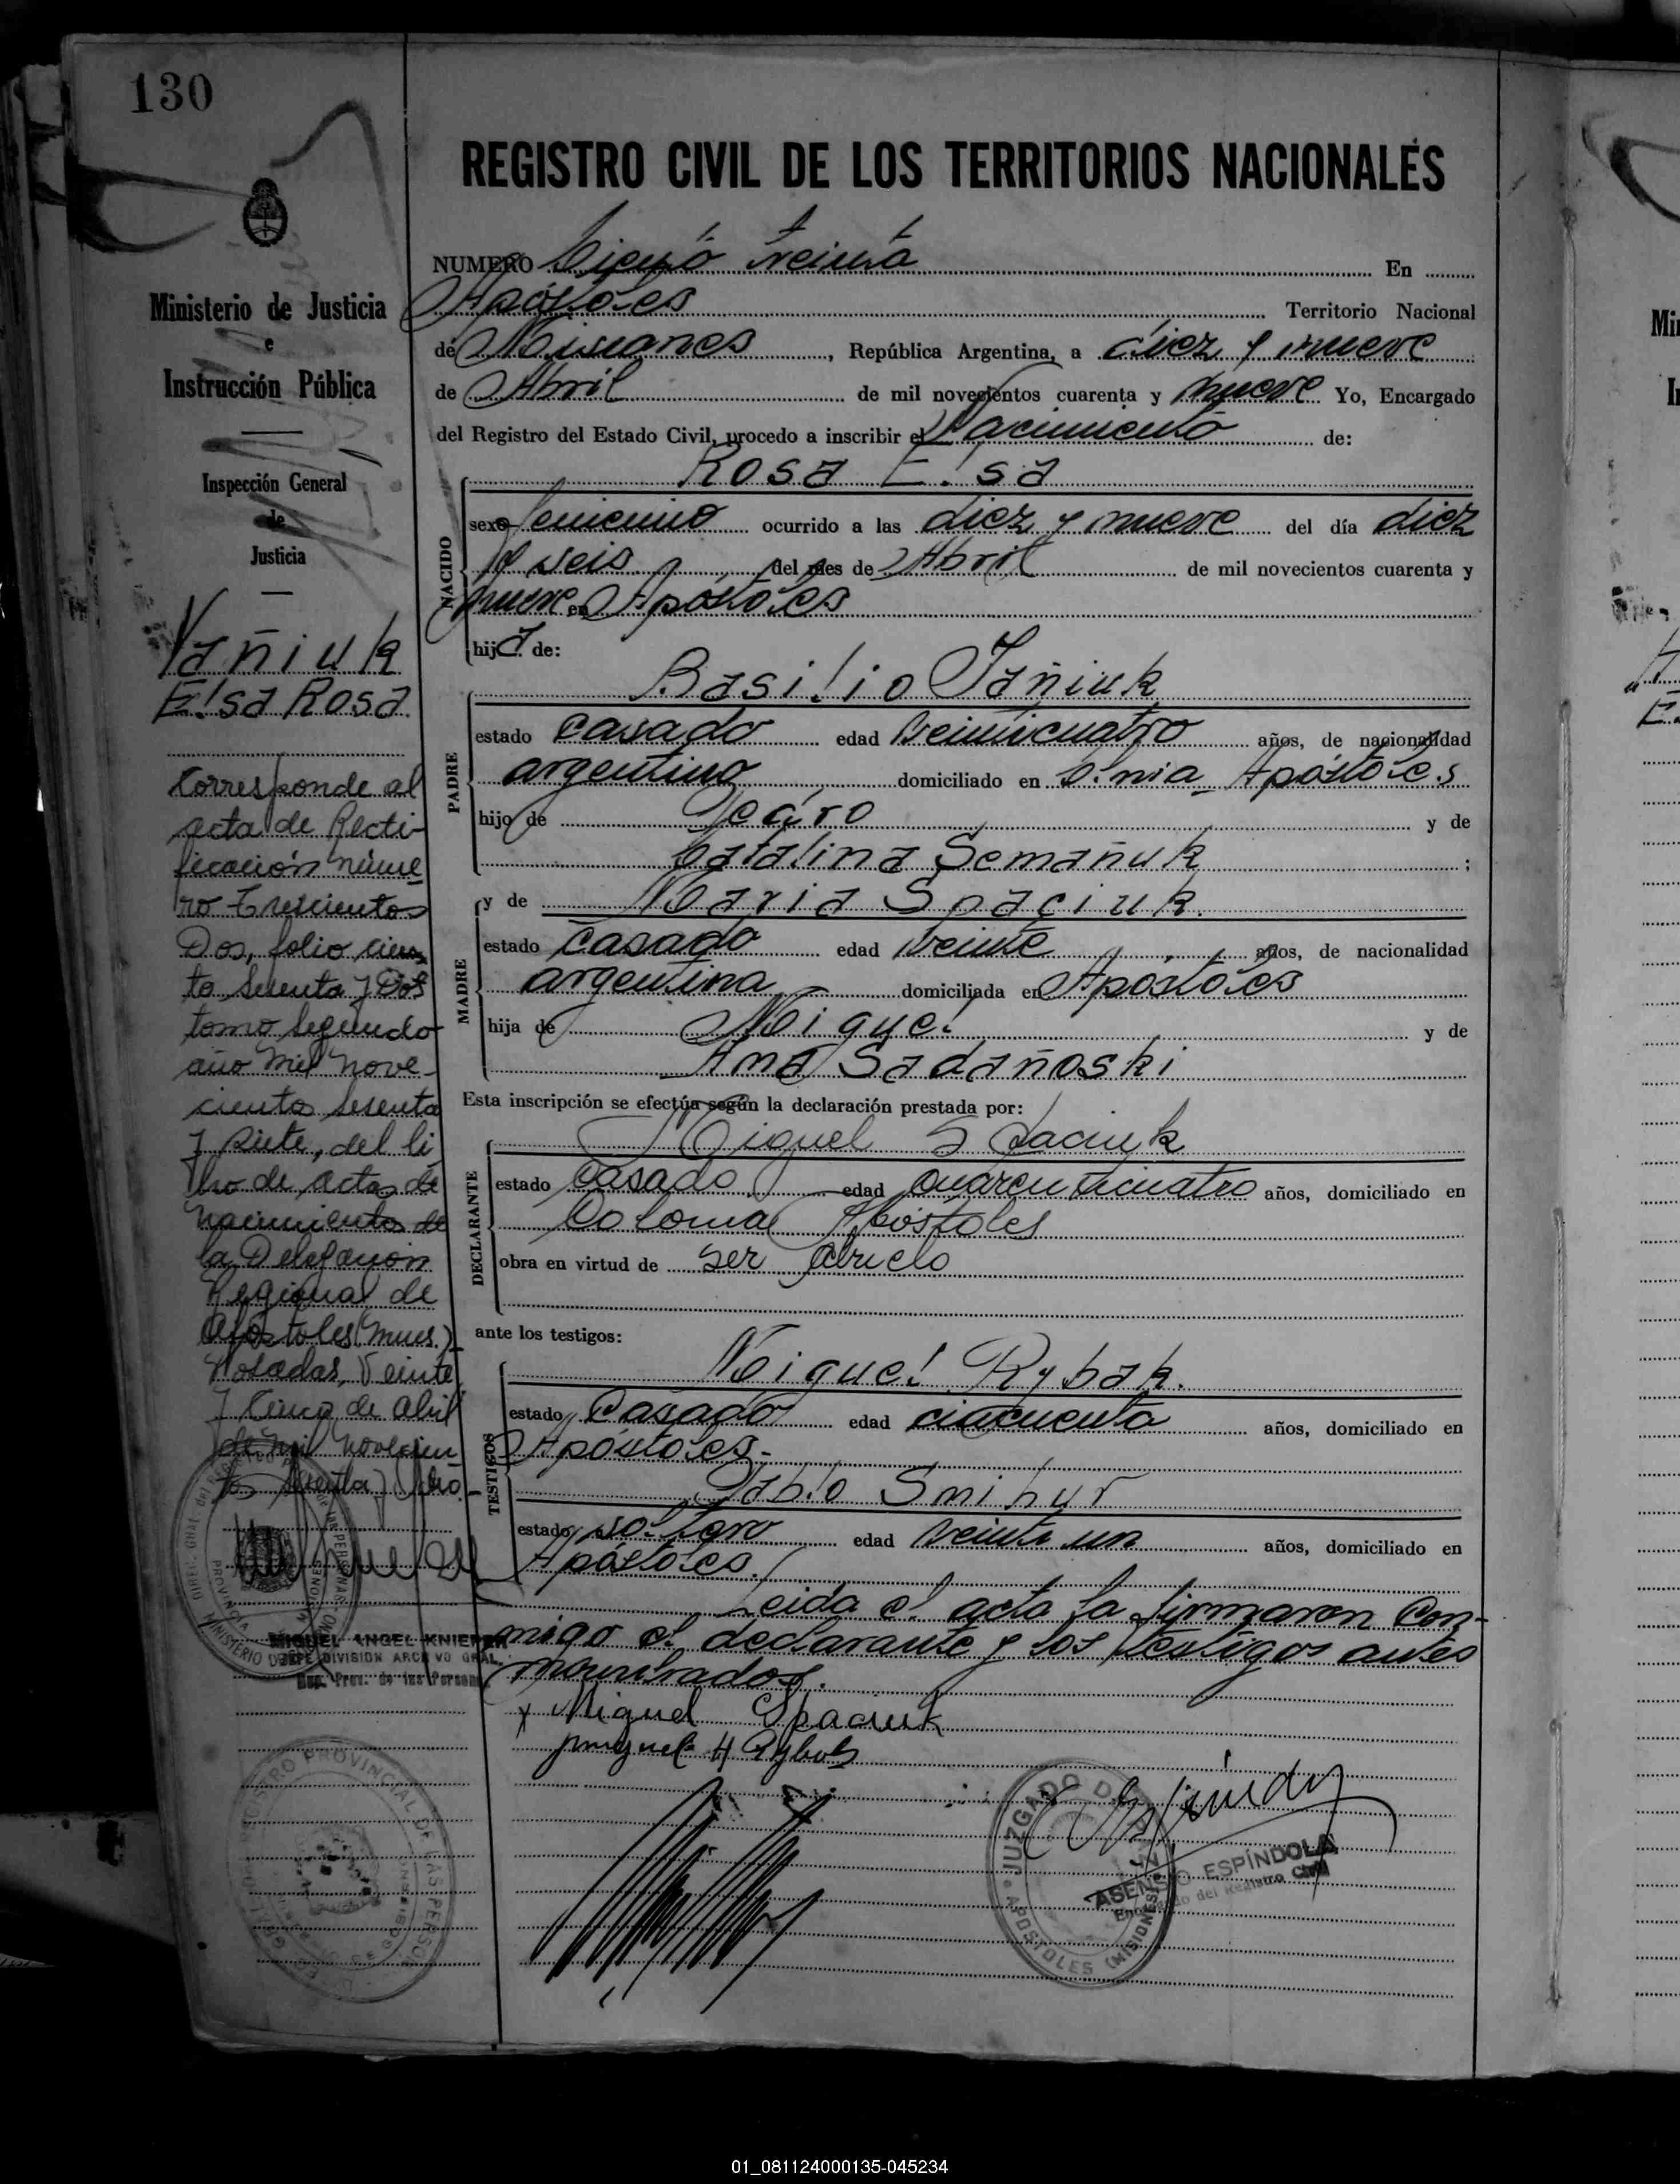 130
REGISTRO CIVIL DE LOS TERRITORIOS NACIONALES
Ministerio de Justicia
e
Instrucción Pública
Inspección General
de
Justicia
Yañiuk
Elsa Rosa
Corresponde al
acta de Recti-
ficación núme
ro Trescientos
Dos, folio cien
to sesenta y Dos
tomo segundo
año mil nove-
ciento sesenta
y siete, del li
bro de actas de
nacimientos de
la Delegación
Regional de
Apóstoles (Mnes.)
Posadas, Veinte
y Cinco de abril
de mil novecien-
tos sesenta y Ocho.-
MIGUEL ANGEL KNIEPER
JEFE DIVISION ARCHIVO GRAL.
NUMERO Ciento treinta En
Apóstoles Territorio Nacional
de Misiones, República Argentina, a diez y nueve
de Abril de mil novecientos cuarenta y nueve Yo, Encargado
del Registro del Estado Civil, procedo a inscribir el Nacimiento de:
Rosa Elsa
NACIDO
sexo femenino ocurrido a las diez y nueve del día diez
y seis del mes de Abril de mil novecientos cuarenta y
nueve en Apóstoles
hija de:
Basilio Yañiuk
PADRE
estado casado edad veinticuatro años, de nacionalidad
argentino domiciliado en Clnia Apóstoles
hijo de Pedro y de
Catalina Semañuk;
y de María Spaciuk.
MADRE
estado casado edad veinte años, de nacionalidad
argentina domiciliada en Apóstoles
hija de Miguel y de
Ana Sadañoski
Esta inscripción se efectúa según la declaración prestada por:
Miguel Spaciuk
DECLARANTE
estado Casado edad cuarenticuatro años, domiciliado en
Colonia Apóstoles
obra en virtud de ser abuelo
ante los testigos:
Miguel Rybak.
TESTIGOS
estado Casado edad cincuenta años, domiciliado en
Apóstoles.-
Pablo Smihur
estado soltero edad veinte un años, domiciliado en
Apóstoles.
Leida el acta la firmaron Con-
migo el declarante y los testigos antes
mombrados.
x Miguel Spaciuk
JUZGADO DE PAZ
APOSTOLES (MISIONES)
ASENCIO ESPÍNDOLA
Encargado del Registro Civil
01_081124000135-045234